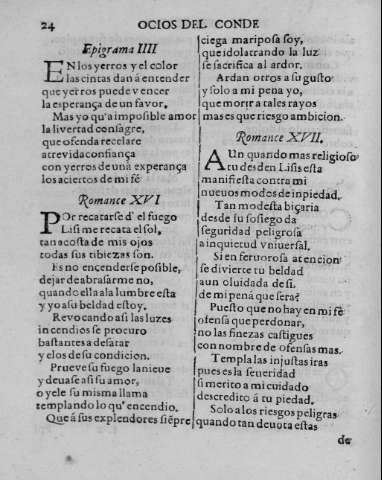 24 OCIOS DEL CONDE
Epigrama IIII
EN los yerros y el color
las cintas dan á entender
que yerros puede vencer
la esperança de un favor.
Mas yo qu'a imposible amor
la livertad consagre,
que ofenda recelare
atrevida confiança
con yerros de unã esperança
los aciertos de mi fé
Romance XVI
POr recatarse d' el fuego
Lisi me recata el sol,
tan acosta de mis ojos
todas sus tibiezas son.
Es no encenderse posible,
dejar de abrasarme no,
quando ella ala lumbre esta
y yo a su beldad estoy.
Revocando asi las luzes
incendios se procuro
bastantes a desatar
y elos de su condicion.
Prueve su fuego la nieve
y devase asi su amor,
o yele su misma llama
templando lo qu' encendio.
Que á sus explendores siẽpre
ciega mariposa soy,
que idolatrando la luz
se sacrifica al ardor.
Ardan otros a su gusto
y solo a mi pena yo,
que morir a tales rayos
mas es que riesgo ambicion.
Romance XVII.
AUn quando mas religioso
tu desden Lisis esta
manifiesta contra mi
nuevos modos de inpiedad.
Tan modesta biçaria
desde su sosiego da
seguridad peligrosa
a inquietud vniversal.
Si en fervorosa atencion
se divierte tu beldad
aun oluidada de si.
de mi pená que serà?
Puesto que no hay en mi fé
ofensa que perdonar,
no las finezas castigues
con nombre de ofensas mas.
Templa las injustas iras
pues es la severidad
si merito a mi cuidado
descredito á tu piedad.
Solo a los riesgos peligras
quando tan devota estas
de